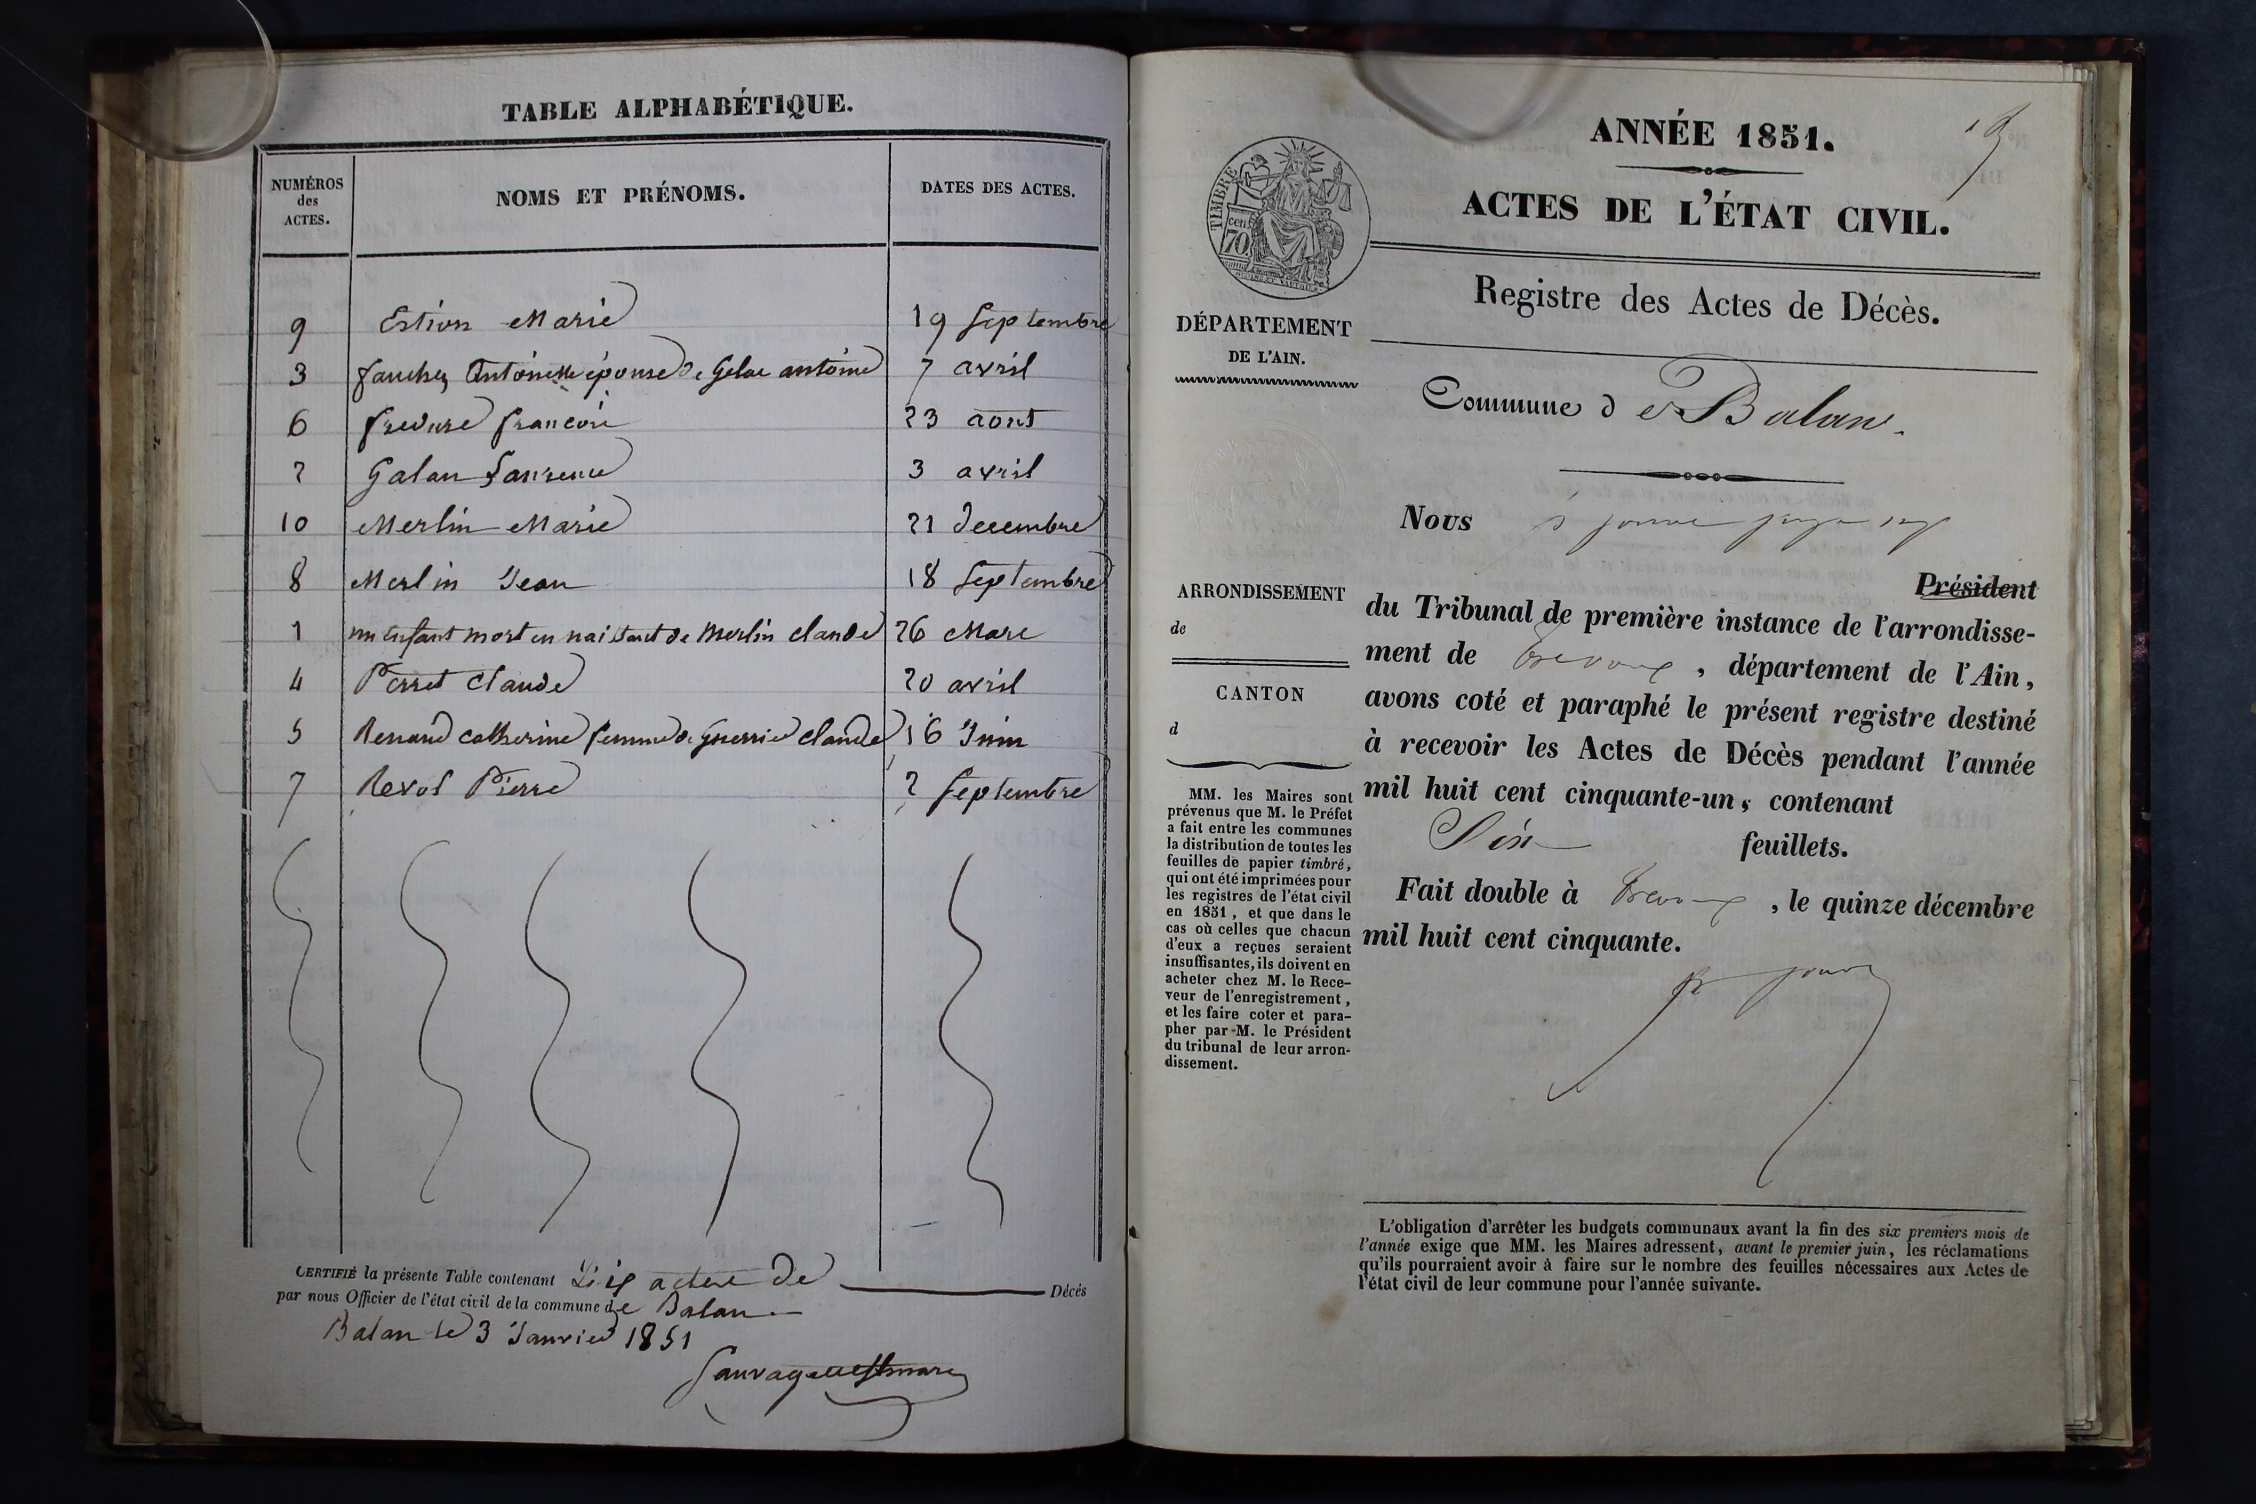 TABLE ALPHABÉTIQUE.
NUMÉROS
des
ACTES.
NOMS ET PRÉNOMS.
DATES DES ACTES.
9 Estion Marie 19 Septembre
3 fauchez Antoinette épouse de Gelae antoine 7 avril
6 françois 23 aout
2 Galan Laurence 3 avril
10 Merlin Marie 21 decembre
8 Merlin Jean 18 Septembre
1 un Enfant mort en naissant de Merlin claude 26 Mars
4 Perret Claude 20 avril
5 Renaud catherine femme de Guerrie claude 16 Juin
7 Revol Pierre 2 Septembre
CERTIFIÉ la présente Table contenant Dix actes de Décès
par nous Officier de l'état civil de la commune de Balan
Balan le 3 Janvier 1851
ANNÉE 1851.
ACTES DE L'ÉTAT CIVIL.
TIMBRE
70
cen.
Registre des Actes de Décès.
DÉPARTEMENT
DE L'AIN.
Commune de Balan.
Nous
Président
ARRONDISSEMENT
de
CANTON
d
MM. les Maires sont
prévenus que M. le Préfet
a fait entre les communes
la distribution de toutes les
feuilles de papier timbré,
qui ont été imprimées pour
les registres de l'état civil
en 1851, et que dans le
cas où celles que chacun
d'eux a reçues seraient
insuffisantes, ils doivent en
acheter chez M. le Rece-
veur de l'enregistrement,
et les faire coter et para-
pher par M. le Président
du tribunal de leur arron-
dissement.
du Tribunal de première instance de l'arrondisse-
ment de Trevoux, département de l'Ain,
avons coté et paraphé le présent registre destiné
à recevoir les Actes de Décès pendant l'année
mil huit cent cinquante-un, contenant
feuillets.
Fait double à Trevoux, le quinze décembre
mil huit cent cinquante.
L'obligation d'arrêter les budgets communaux avant la fin des six premiers mois de
l'année exige que MM. les Maires adressent, avant le premier juin, les réclamations
qu'ils pourraient avoir à faire sur le nombre des feuilles nécessaires aux Actes de
l'état civil de leur commune pour l'année suivante.